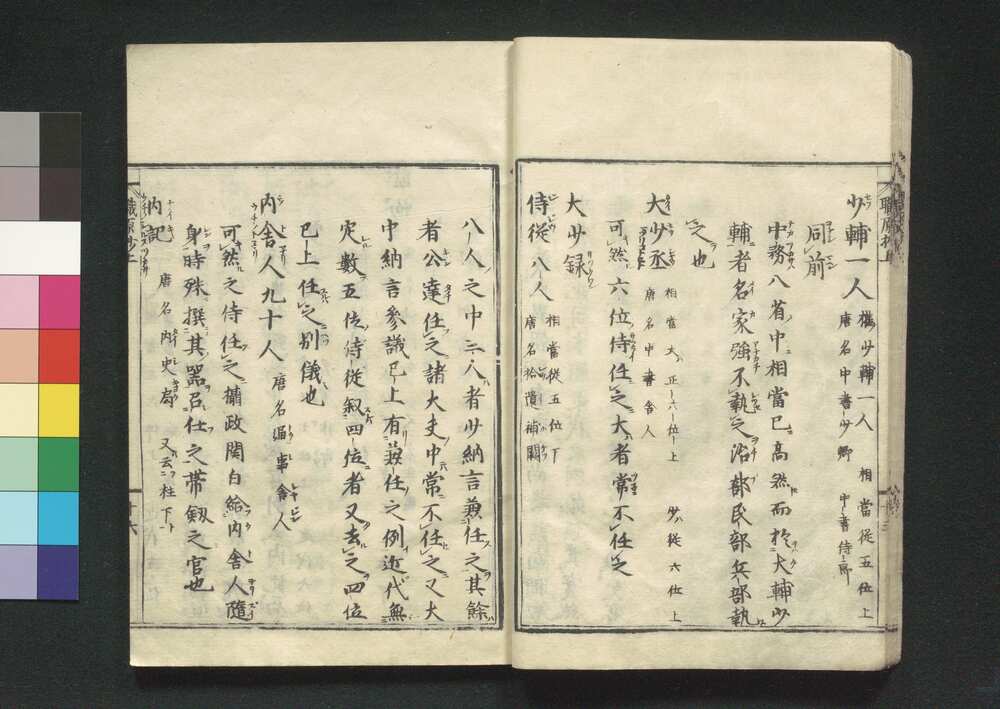 少輔一人 權少輔一人 相當從五位上
唐名中書少卿 中書侍郎
同前
中務八省中相當已高然而於大輔少
輔者名家強不執之治部民部兵部執
之也
大少丞 相當大正六位上 少從六位上
唐名中書舍人
可然六位侍任之大者常不任之
大少録
侍從八人 相當從五位下
唐名拾遺補闕
八人之中三人者少納言兼任之其餘
者公達任之諸大夫中常不任之又大
中納言參議已上有兼任之例近代無
定數五位侍從叙四位者又去之四位
已上任之別儀也
内舍人九十人 唐名通事舍人
可然之侍任之攝政関白給内舍人隨
身時殊撰其器召仕之帶釼之官也
内記 唐名内史局 又云柱下
職原抄上
十六